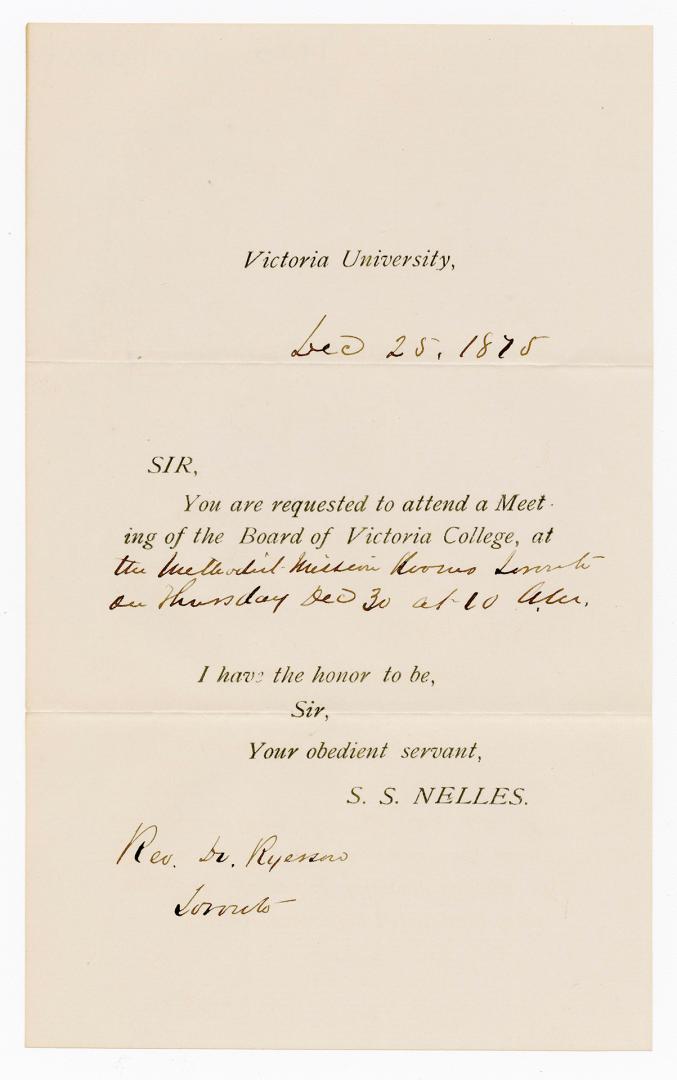 Victoria University,
Dec 25, 1875
SIR,
You are requested to attend a Meet-
ing of the Board of Victoria College, at
the Methodist Mission Rooms Toronto
on Thursday Dec 30 at 10 A.M.
I have the honor to be,
Sir,
Your obedient servant,
S. S. NELLES.
Rev. Dr. Ryerson
Toronto